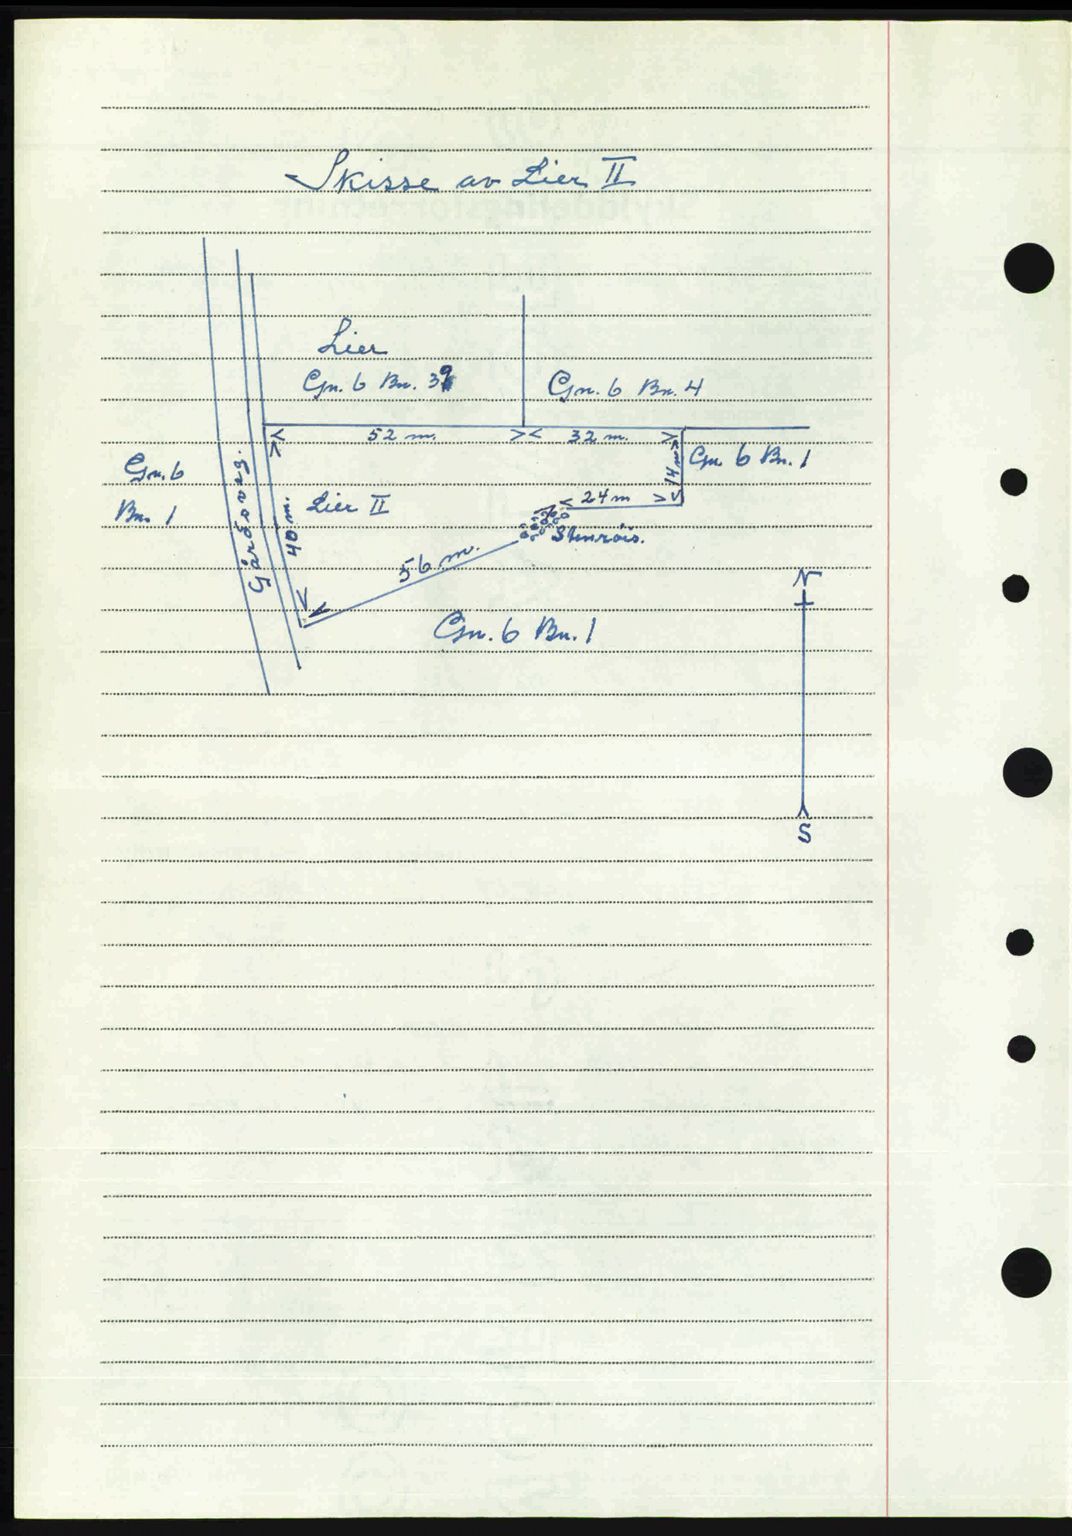 Skisse av Lier II
Lier
Gn. 6 Bn. 39
Gn. 6 Bn. 4
52 m.
32 m.
14 m
Gn 6 Bn. 1
Gn. 6
Bn. 1
Gårdsveg.
40 m.
Lier II
24 m
Stenröis.
56 m.
Gn. 6 Bn. 1
N
S